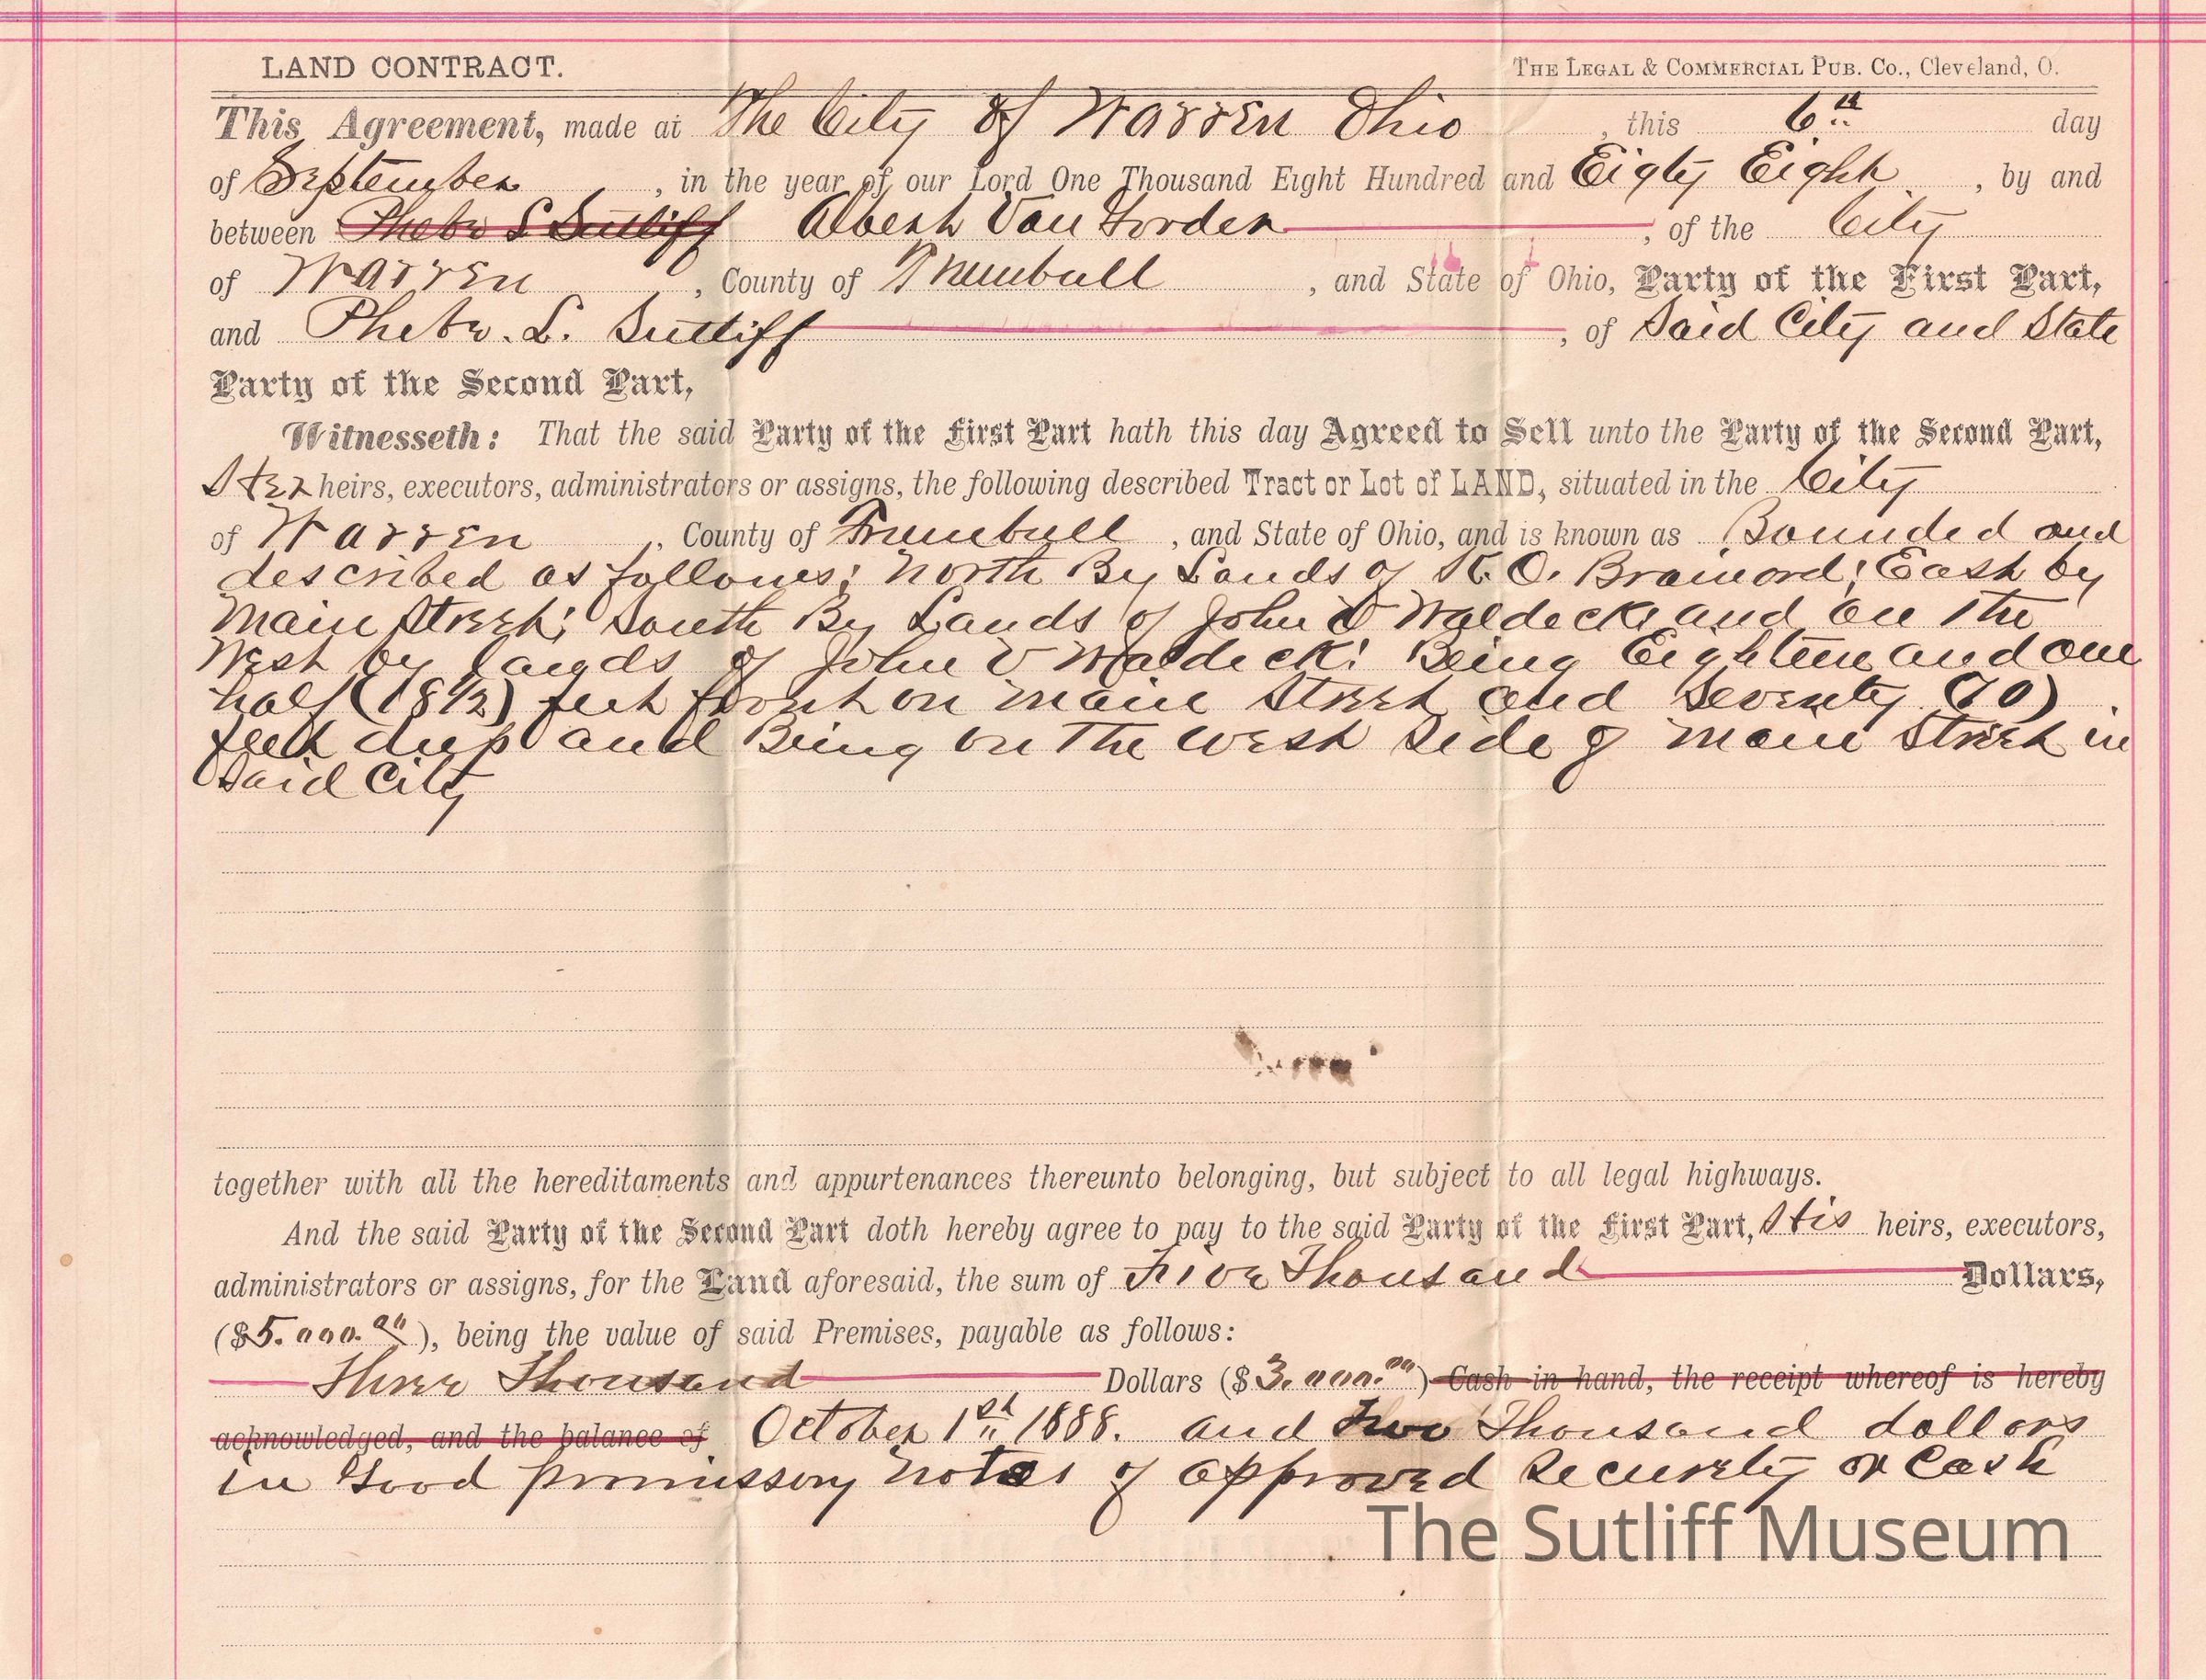 LAND CONTRACT. THE LEGAL & COMMERCIAL PUB. CO., Cleveland, O.
This Agreement, made at The City of Warren Ohio, this 6th day
of September, in the year of our Lord One Thousand Eight Hundred and Eigty Eight, by and
between Phebe L Sutliff Albert Van Gorder, of the City
of Warren, County of Trumbull, and State of Ohio, Party of the First Part,
and Phebe. L. Sutliff, of Said City and State
Party of the Second Part,
Witnesseth: That the said Party of the First Part hath this day Agreed to Sell unto the Party of the Second Part,
Her heirs, executors, administrators or assigns, the following described Tract or Lot of LAND, situated in the City
of Warren, County of Trumbull, and State of Ohio, and is known as Bounded and
described as follows; North By Lands of Brainard; East by
Main Street; South By Lands of John Waldeck and on the
West by lands of John Waldeck; Being Eighteen and one
half (18½) feet front on Main Street and Seventy (70)
feet deep and Being on the West Side of Main Street in
Said City
together with all the hereditaments and appurtenances thereunto belonging, but subject to all legal highways.
And the said Party of the Second Part doth hereby agree to pay to the said Party of the First Part, His heirs, executors,
administrators or assigns, for the Land aforesaid, the sum of Five Thousand Dollars,
($5.000.00), being the value of said Premises, payable as follows:
Three Thousand Dollars ($3.000.00) Cash in hand, the receipt whereof is hereby
acknowledged, and the balance of October 1st 1888. and Two Thousand dollars
in Good promissory notes of approved Security or Cash
The Sutliff Museum